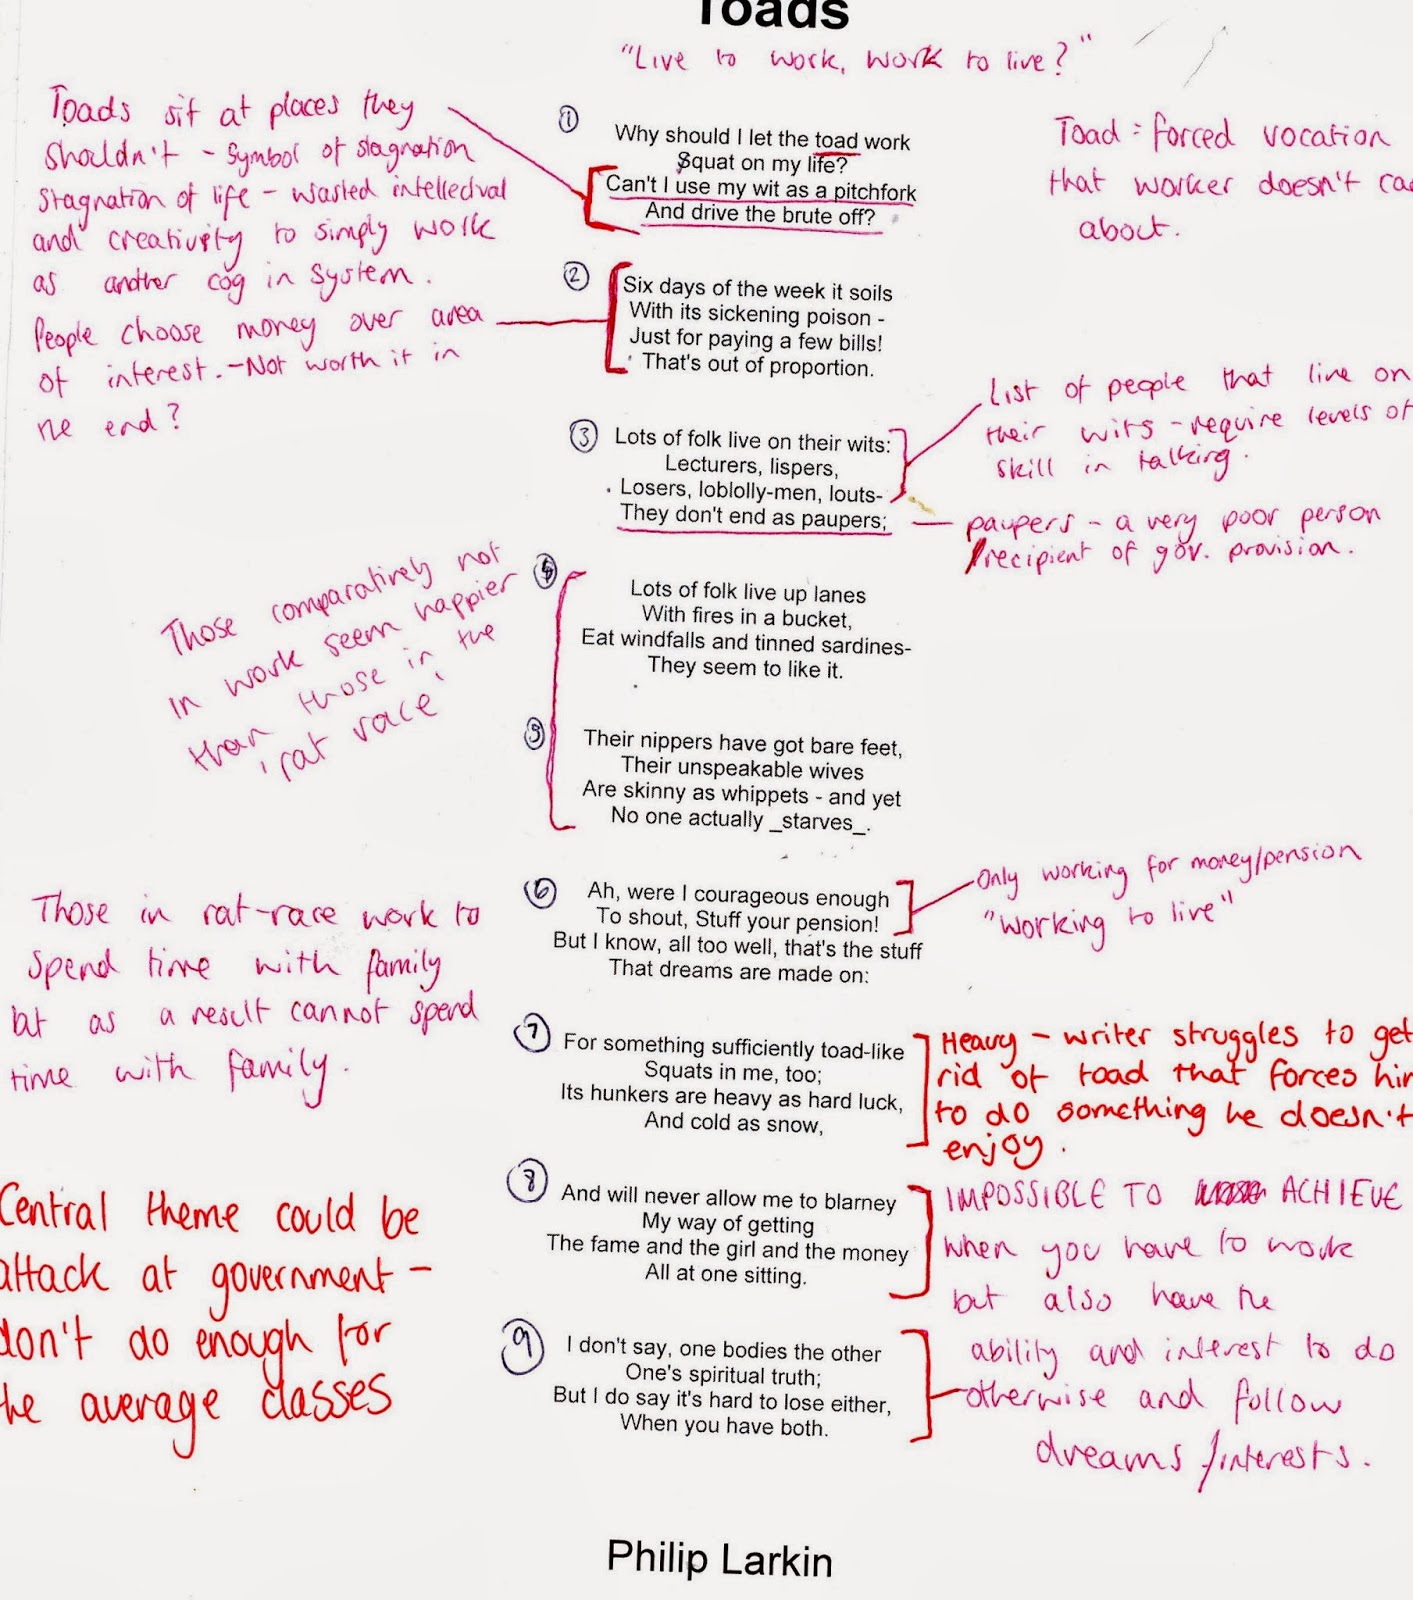 Toads
"Live to work, work to live?"
Toads sit at places they
shouldn't - Symbol of stagnation
Stagnation of life - wasted intellectual
and creativity to simply work
as another cog in system.
People choose money over area
of interest. - Not worth it in
the end?
Toad = forced vocation
that worker doesn't ca
about.
①
Why should I let the toad work
Squat on my life?
Can't I use my wit as a pitchfork
And drive the brute off?
②
Six days of the week it soils
With its sickening poison -
Just for paying a few bills!
That's out of proportion.
③
Lots of folk live on their wits:
Lecturers, lispers,
Losers, loblolly-men, louts-
They don't end as paupers;
List of people that live on
their wits - require levels of
skill in talking.
paupers - a very poor person
recipient of gov. provision.
Those comparatively not
in work seem happier
than those in the
'rat race'
④
Lots of folk live up lanes
With fires in a bucket,
Eat windfalls and tinned sardines-
They seem to like it.
⑤
Their nippers have got bare feet,
Their unspeakable wives
Are skinny as whippets - and yet
No one actually _starves_.
⑥
Ah, were I courageous enough
To shout, Stuff your pension!
But I know, all too well, that's the stuff
That dreams are made on:
Only working for money/pension
"Working to live"
Those in rat-race work to
spend time with family
but as a result cannot spend
time with family.
⑦
For something sufficiently toad-like
Squats in me, too;
Its hunkers are heavy as hard luck,
And cold as snow,
Heavy - writer struggles to get
rid of toad that forces him
to do something he doesn't
enjoy.
⑧
And will never allow me to blarney
My way of getting
The fame and the girl and the money
All at one sitting.
IMPOSSIBLE TO ACHIEVE
when you have to work
but also have the
ability and interest to do
otherwise and follow
dreams/interests.
Central theme could be
attack at government -
don't do enough for
the average classes
⑨
I don't say, one bodies the other
One's spiritual truth;
But I do say it's hard to lose either,
When you have both.
Philip Larkin